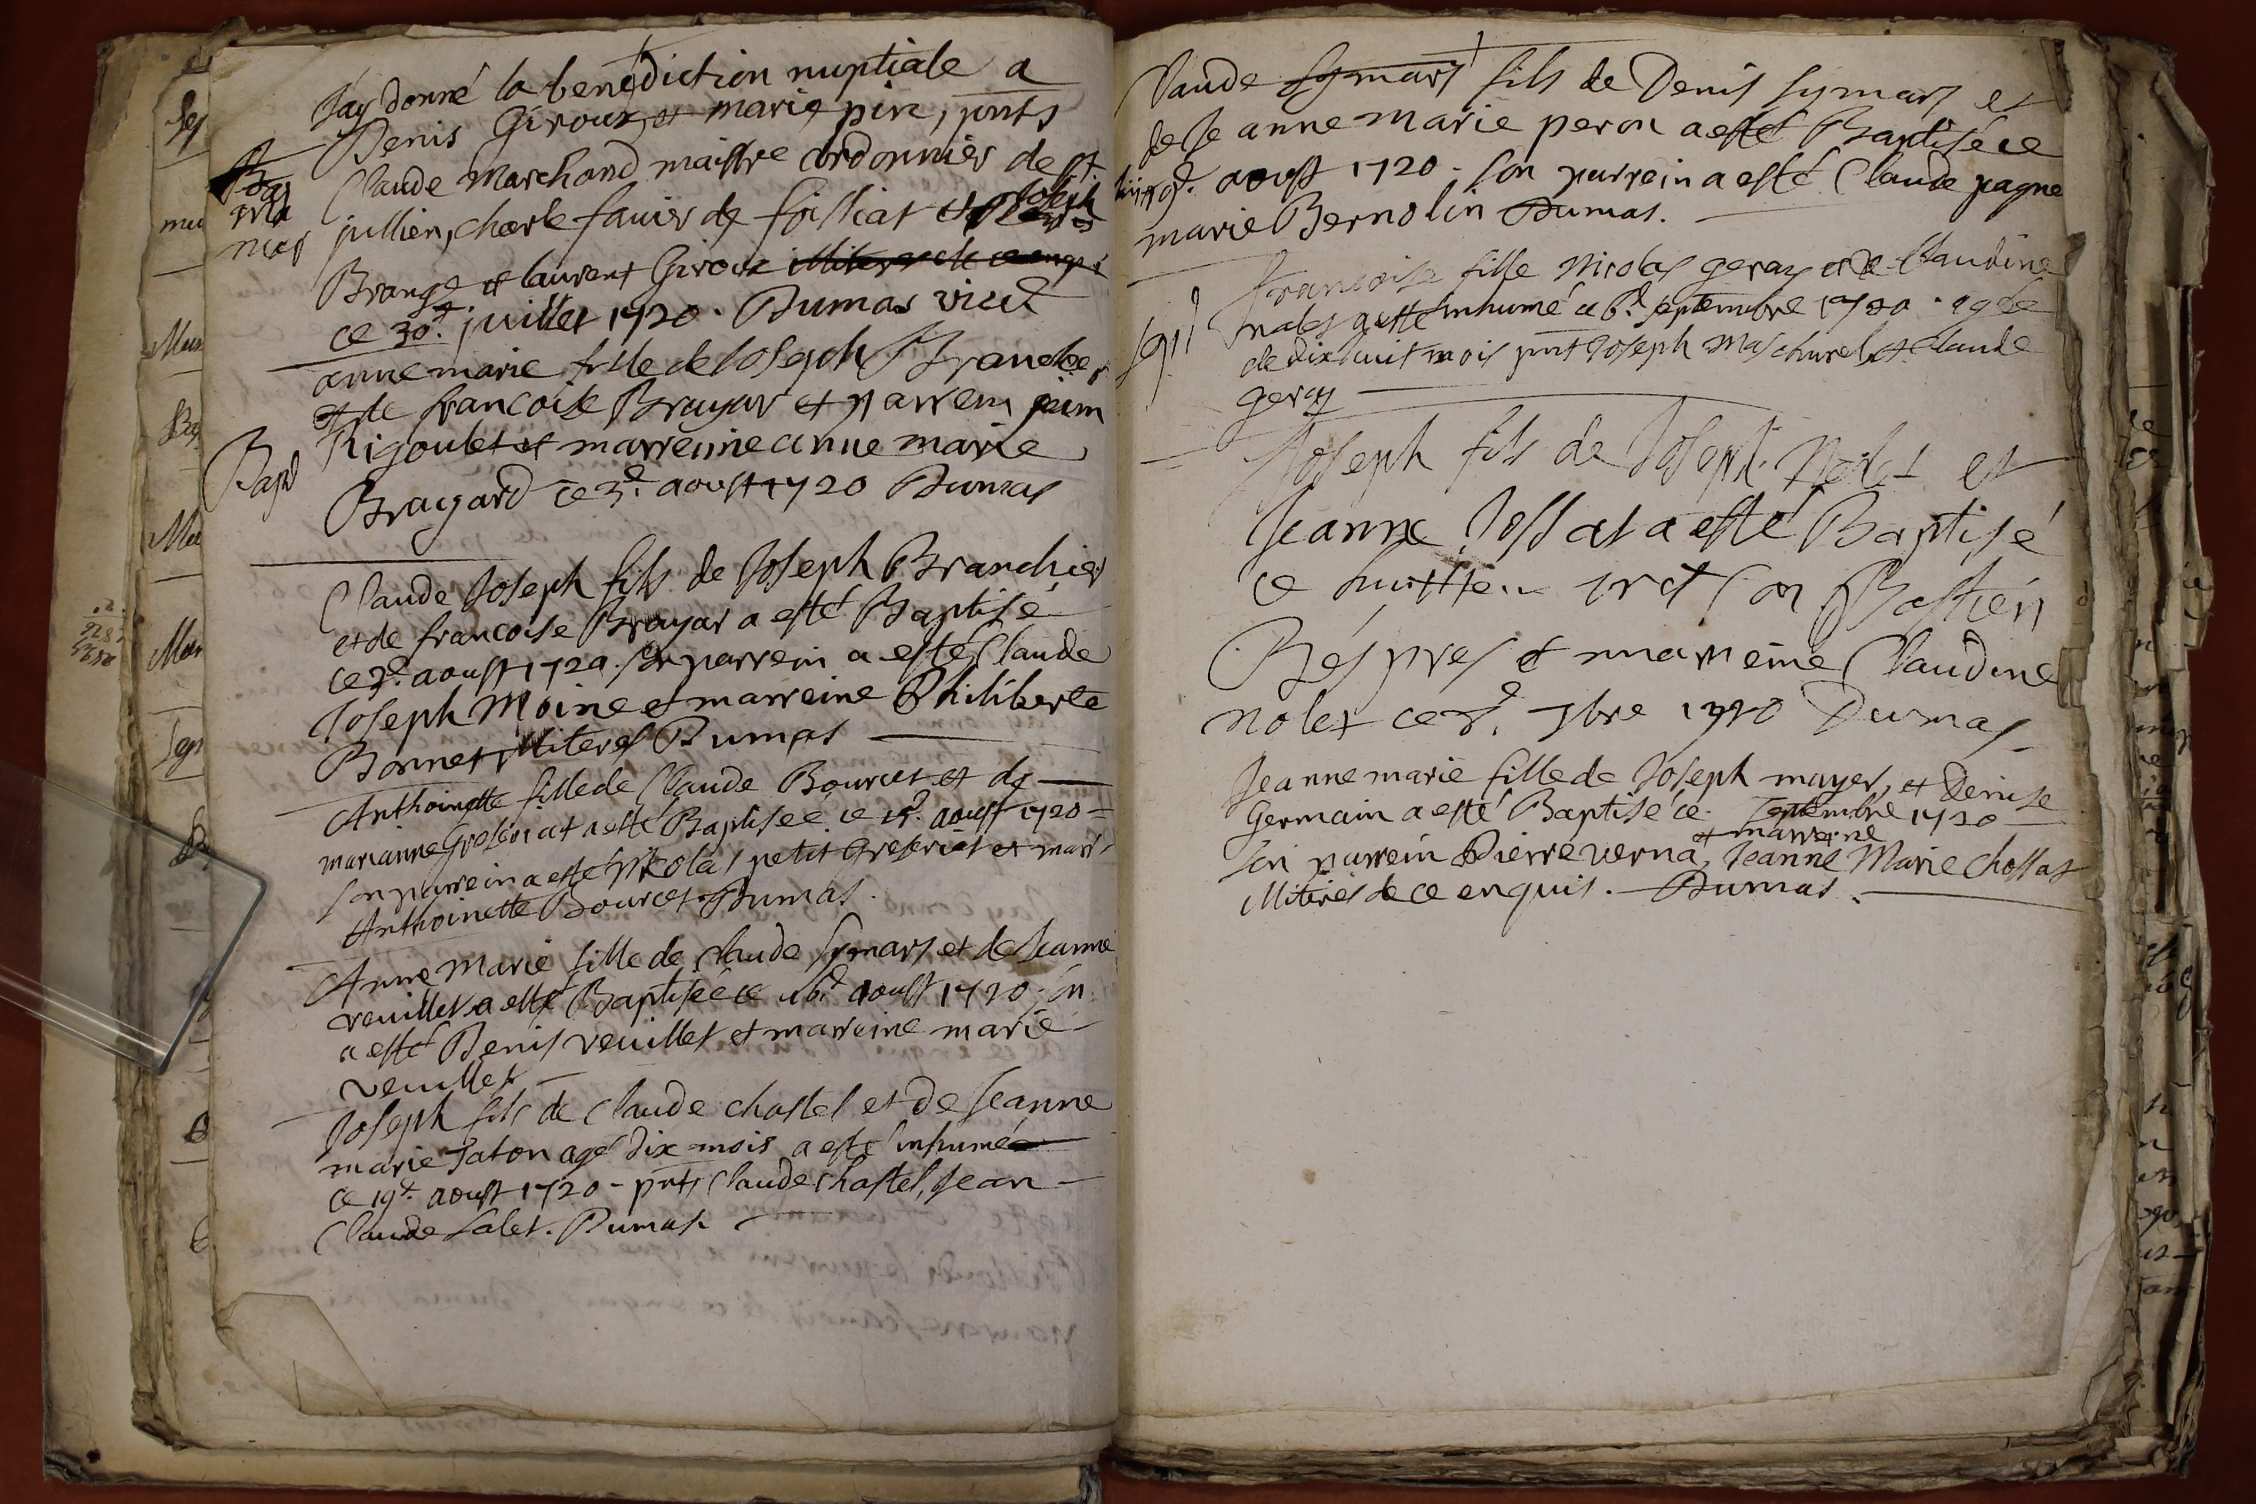 Jay donné la benediction nuptiale a
Denis Giroux et marie pin, pnts
Claude Marchand maistre cordonnier de st
jullien, charle favier de foissiat et Joseph
Brange et laurent Giroux
ce 30e. juillet 1720. Dumas vice
Mar
anne marie fille de Joseph
et de francoise Brayar et parrein
Rigoulet et marreinne anne marie
Brayard ce 3e. aoust 1720 Dumas
Bapt
Claude Joseph fils de Joseph Branchier
et de francoise Brayar a esté Baptisé
ce 3e. aoust 1720. son parrein a esté Claude
Joseph Moine et marreine Philiberte
Bonnet illiteres Dumas
Anthoinette fille de Claude Bourcet et de
marianne Greseriat a esté Baptisée ce 15e. aoust 1720
son parrein a esté Nicolas petit Greseriat et marr
Anthoinette Bourcet Dumas.
Anne Marie fille de Claude Symars et de Jeanne
veuillet a esté Baptisée ce 16e. aoust 1720 son
a esté Denis veuillet et marreine marie
veuillet
Joseph fils de Claude chastel et de Jeanne
marie Paton agé dix mois a esté inhumé
ce 19e. aoust 1720 - pnts Claude Chastel, Jean
Claude Salet. Dumas
Claude Symars fils de Denis Symars et
de Jeanne marie peron a esté Baptisé ce
aoust 1720 - son parrein a esté Claude pagne
marie Bernolin Dumas.
francoise fille Nicolas geray et de Claudine
a esté inhumé ce 6e. septembre 1720 . agée
de dix huit mois pnt Joseph Maschurel et Claude
geray
Joseph fils de Joseph Nolet et
Jeanne Jossat a esté Baptisé
ce son Bastien
Béspres et marreine Claudine
nolet ce 8e. 7bre 1720 Dumas
Jeanne marie fille de Joseph mayer, et Denise
Germain a esté Baptisé ce septembre 1720
et marreine
son parrein Pierre verna, Jeanne Marie Chossat
illiteres de ce enquis. Dumas.